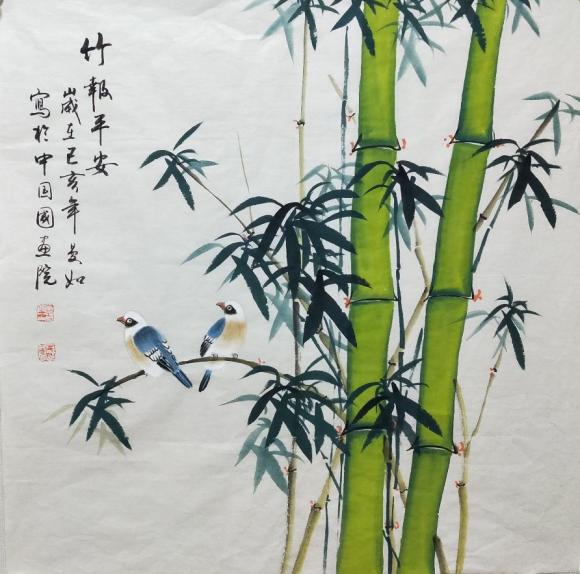 竹報平安
歲在己亥年ㄠ如
寫於中国國畫院